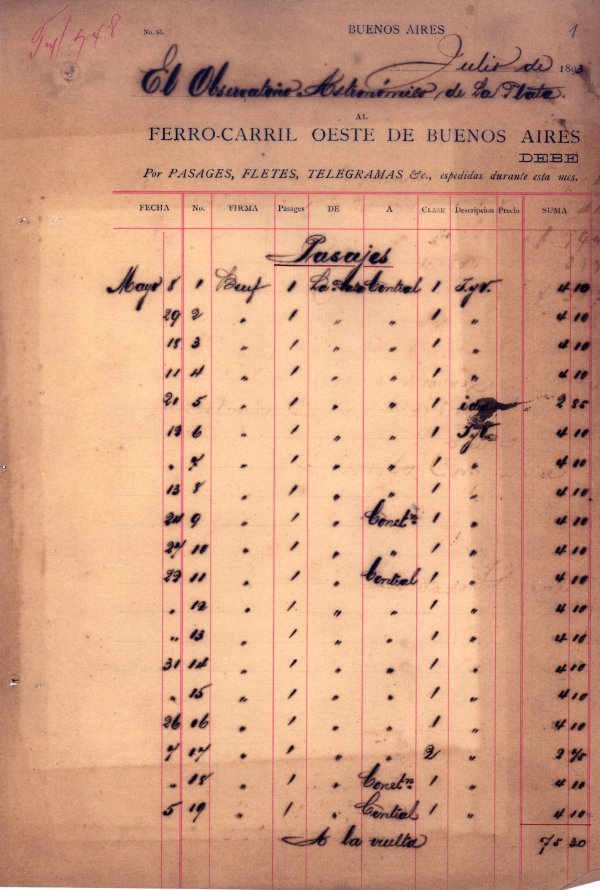 Fol 948
No. 95. BUENOS AIRES 1
Julio de 1893
El Observatorio Astronómico de La Plata.
AL
FERRO-CARRIL OESTE DE BUENOS AIRES
DEBE
Por PASAGES, FLETES, TELEGRAMAS &c., espedidas durante esta mes.
FECHA No. FIRMA Pasages DE A CLASE Descripcion Precio SUMA
Pasajes
Mayo 8 1 Beuf 1 La Plata Central 1 I.y V. 4 10
29 2 " 1 " " 1 " 4 10
18 3 " 1 " " 1 " 4 10
11 4 " 1 " " 1 " 4 10
21 5 " 1 " " 1 ida 2 85
13 6 " 1 " " 1 I.y V. 4 10
" 7 " 1 " " 1 " 4 10
13 8 " 1 " " 1 " 4 10
24 9 " 1 " Constn 1 " 4 10
27 10 " 1 " " 1 " 4 10
22 11 " 1 " Central 1 " 4 10
" 12 " 1 " " 1 " 4 10
" 13 " 1 " " 1 " 4 10
31 14 " 1 " " 1 " 4 10
" 15 " 1 " " 1 " 4 10
26 16 " 1 " " 1 " 4 10
7 17 " 1 " " 2 " 2 75
" 18 " 1 " Constn 1 " 4 10
5 19 " 1 " Central 1 " 4 10
A la vuelta 75 30